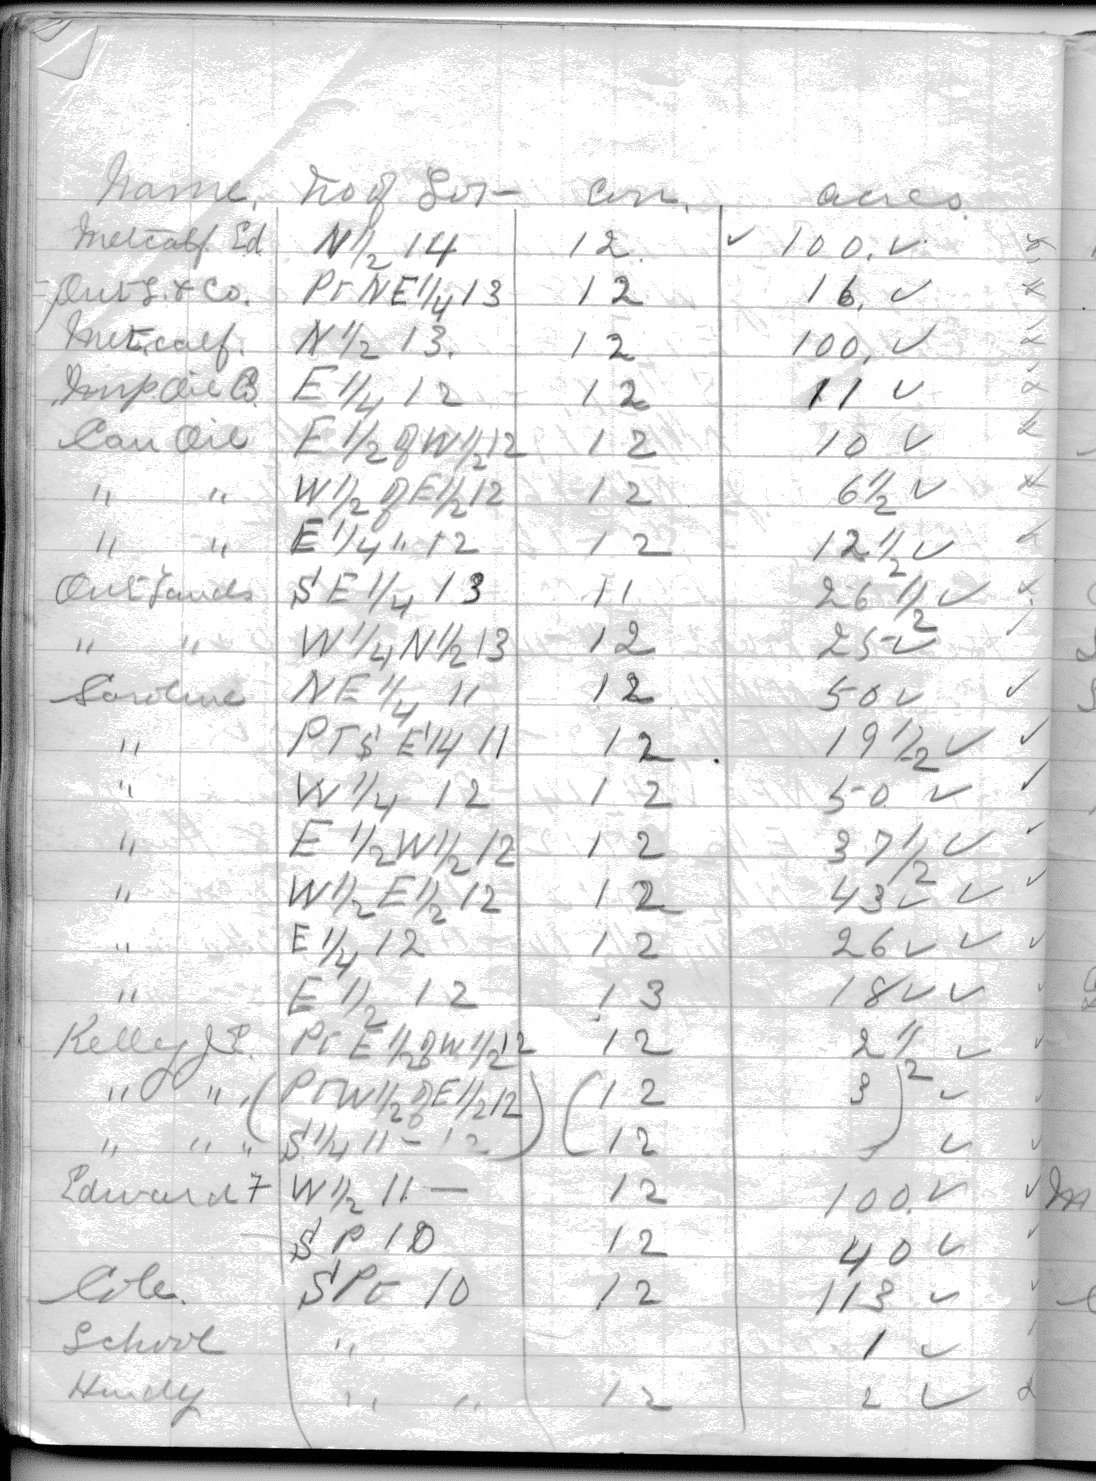 Name. No of Lot Con. acres.
Metcalf Ed N 1/2 14 12. ✓ 100. ✓
Ont L. & Co. Pt NE 1/4 13 12 16. ✓
Metcalf. N 1/2 13. 12 100. ✓
Imp Oil Co E 1/4 12 12 11 ✓
Can Oil E 1/2 of W 1/2 12 12 10 ✓
" " W 1/2 of E 1/2 12 12 6 1/2 ✓
" " E 1/4 " 12 12 12 1/2 ✓
Ont Lands S E 1/4 13 11 26 1/2 ✓
" " W 1/4 N 1/2 13 12 25 ✓
NE 1/4 11 12 50 ✓ ✓
" Pt S E 1/4 11 12 19 1/2 ✓ ✓
" W 1/4 12 12 50. ✓ ✓
" E 1/2 W 1/2 12 12 37 1/2 ✓ ✓
" W 1/2 E 1/2 12 12 43 ✓ ✓ ✓
" E 1/4 12 12 26 ✓ ✓ ✓
" E 1/2 12 13 18 ✓ ✓
Kelley J. E. Pt E 1/2 of W 1/2 12 12 2 1/2 ✓
" " (Pt W 1/2 of E 1/2 12) (12 3) ✓
" " " S 1/4 11 - 12 12 ✓
Edward F W 1/2 11 — 12 100. ✓
S P 10 12 40 ✓
Cole. S Pt 10 12 113 ✓
School " 1 ✓
Hendy " " 12 2 ✓